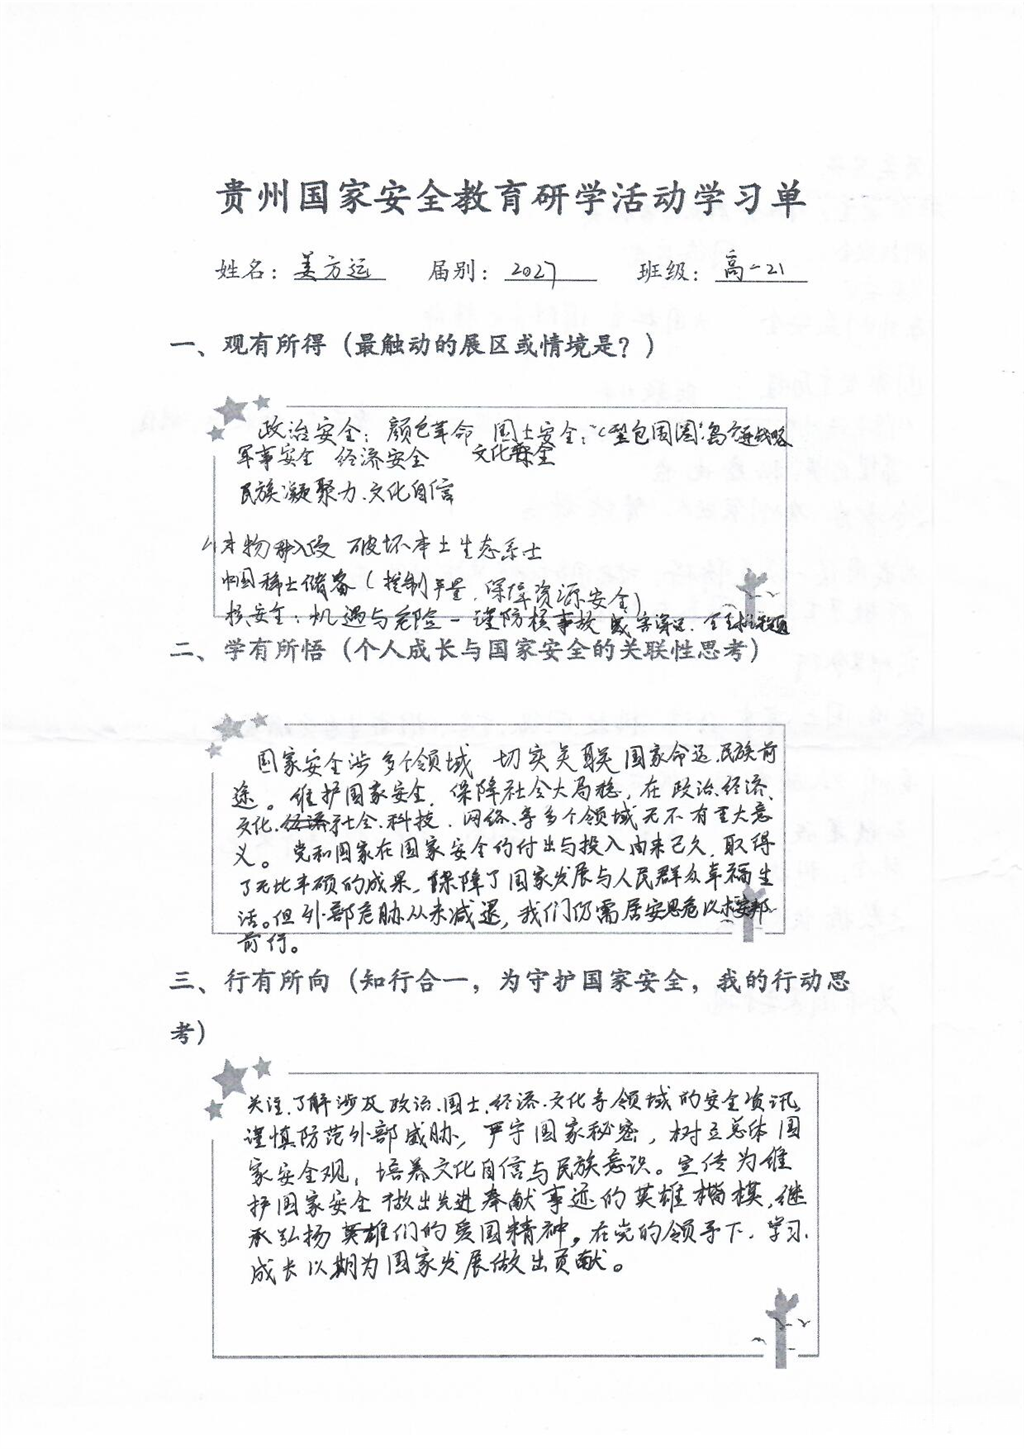 贵州国家安全教育研学活动学习单
姓名：姜方运 届别：2027 班级：高一21
一、观有所得（最触动的展区或情境是？）
政治安全：颜色革命 国土安全：“C型包围圈”岛链战略
军事安全 经济安全 文化安全
民族凝聚力、文化自信
物种入侵 破坏本土生态系士
中国稀土储备（控制产量，保障资源安全）
核安全：机遇与危险－谨防核事故
二、学有所悟（个人成长与国家安全的关联性思考）
国家安全涉多个领域 切实关联国家命运、民族前
途。维护国家安全，保障社会大局稳，在政治、经济、
文化、社会、科技、网络、等多个领域无不有重大意
义。党和国家在国家安全的付出与投入由来已久，取得
了无比丰硕的成果，保障了国家发展与人民群众幸福生
活。但外部危胁从未减退，我们仍需居安思危以
前行。
三、行有所向（知行合一，为守护国家安全，我的行动思
考）
关注、了解涉及政治、国土、经济、文化等领域的安全资讯，
谨慎防范外部威胁，严守国家秘密，树立总体国
家安全观，培养文化自信与民族意识。宣传为维
护国家安全做出先进奉献事迹的英雄楷模，继
承弘扬英雄们的爱国精神。在党的领导下，学习、
成长以期为国家发展做出贡献。